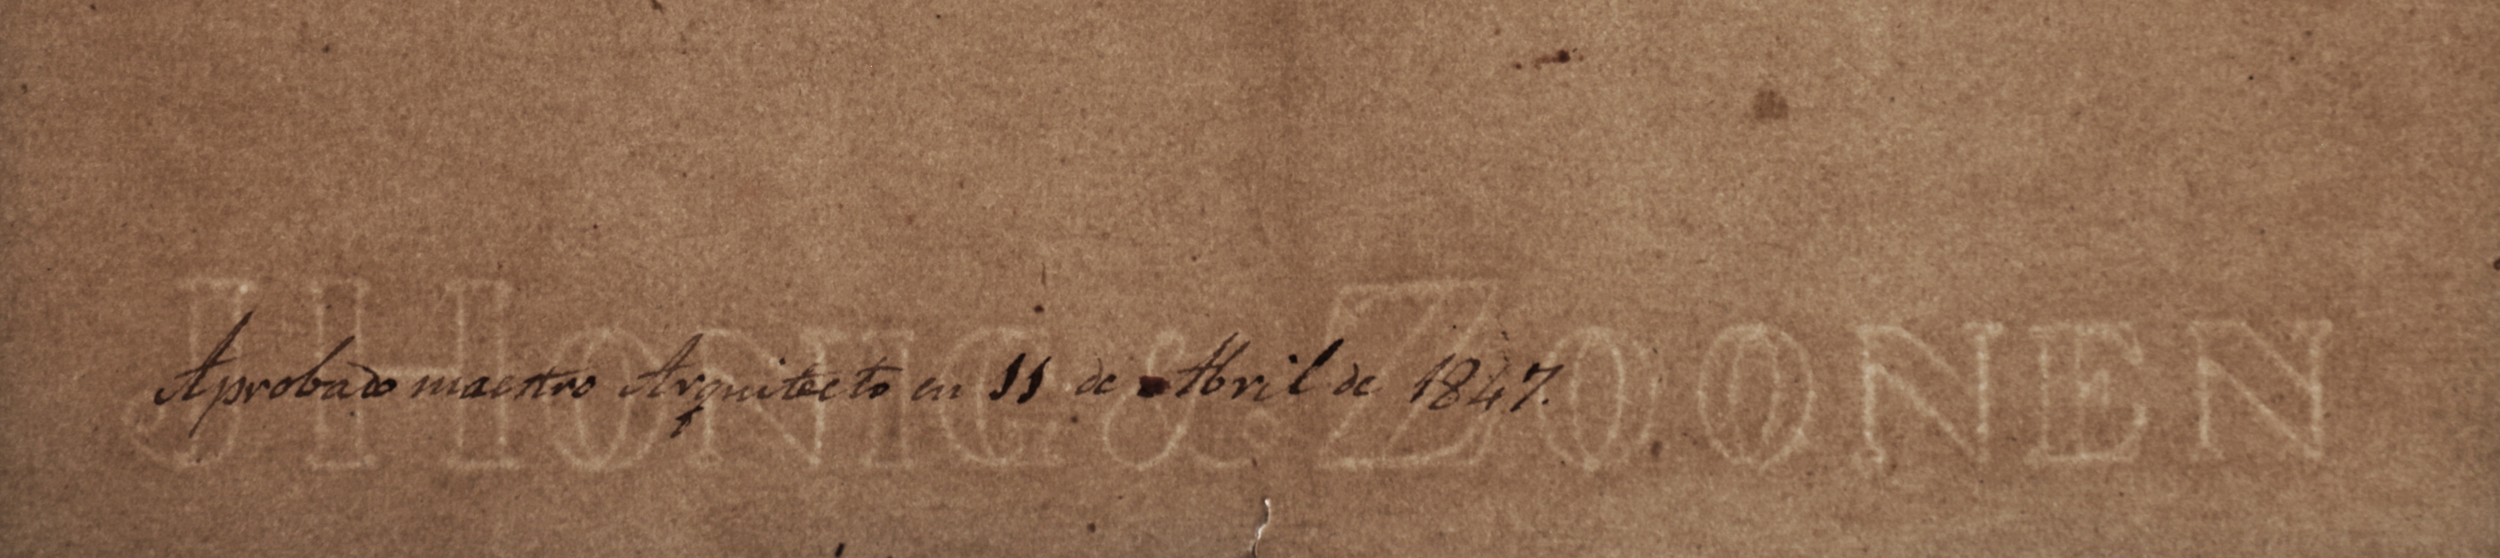 Aprobado maestro Arquitecto en 11 de Abril de 1847.
JHONIG & ZOONEN